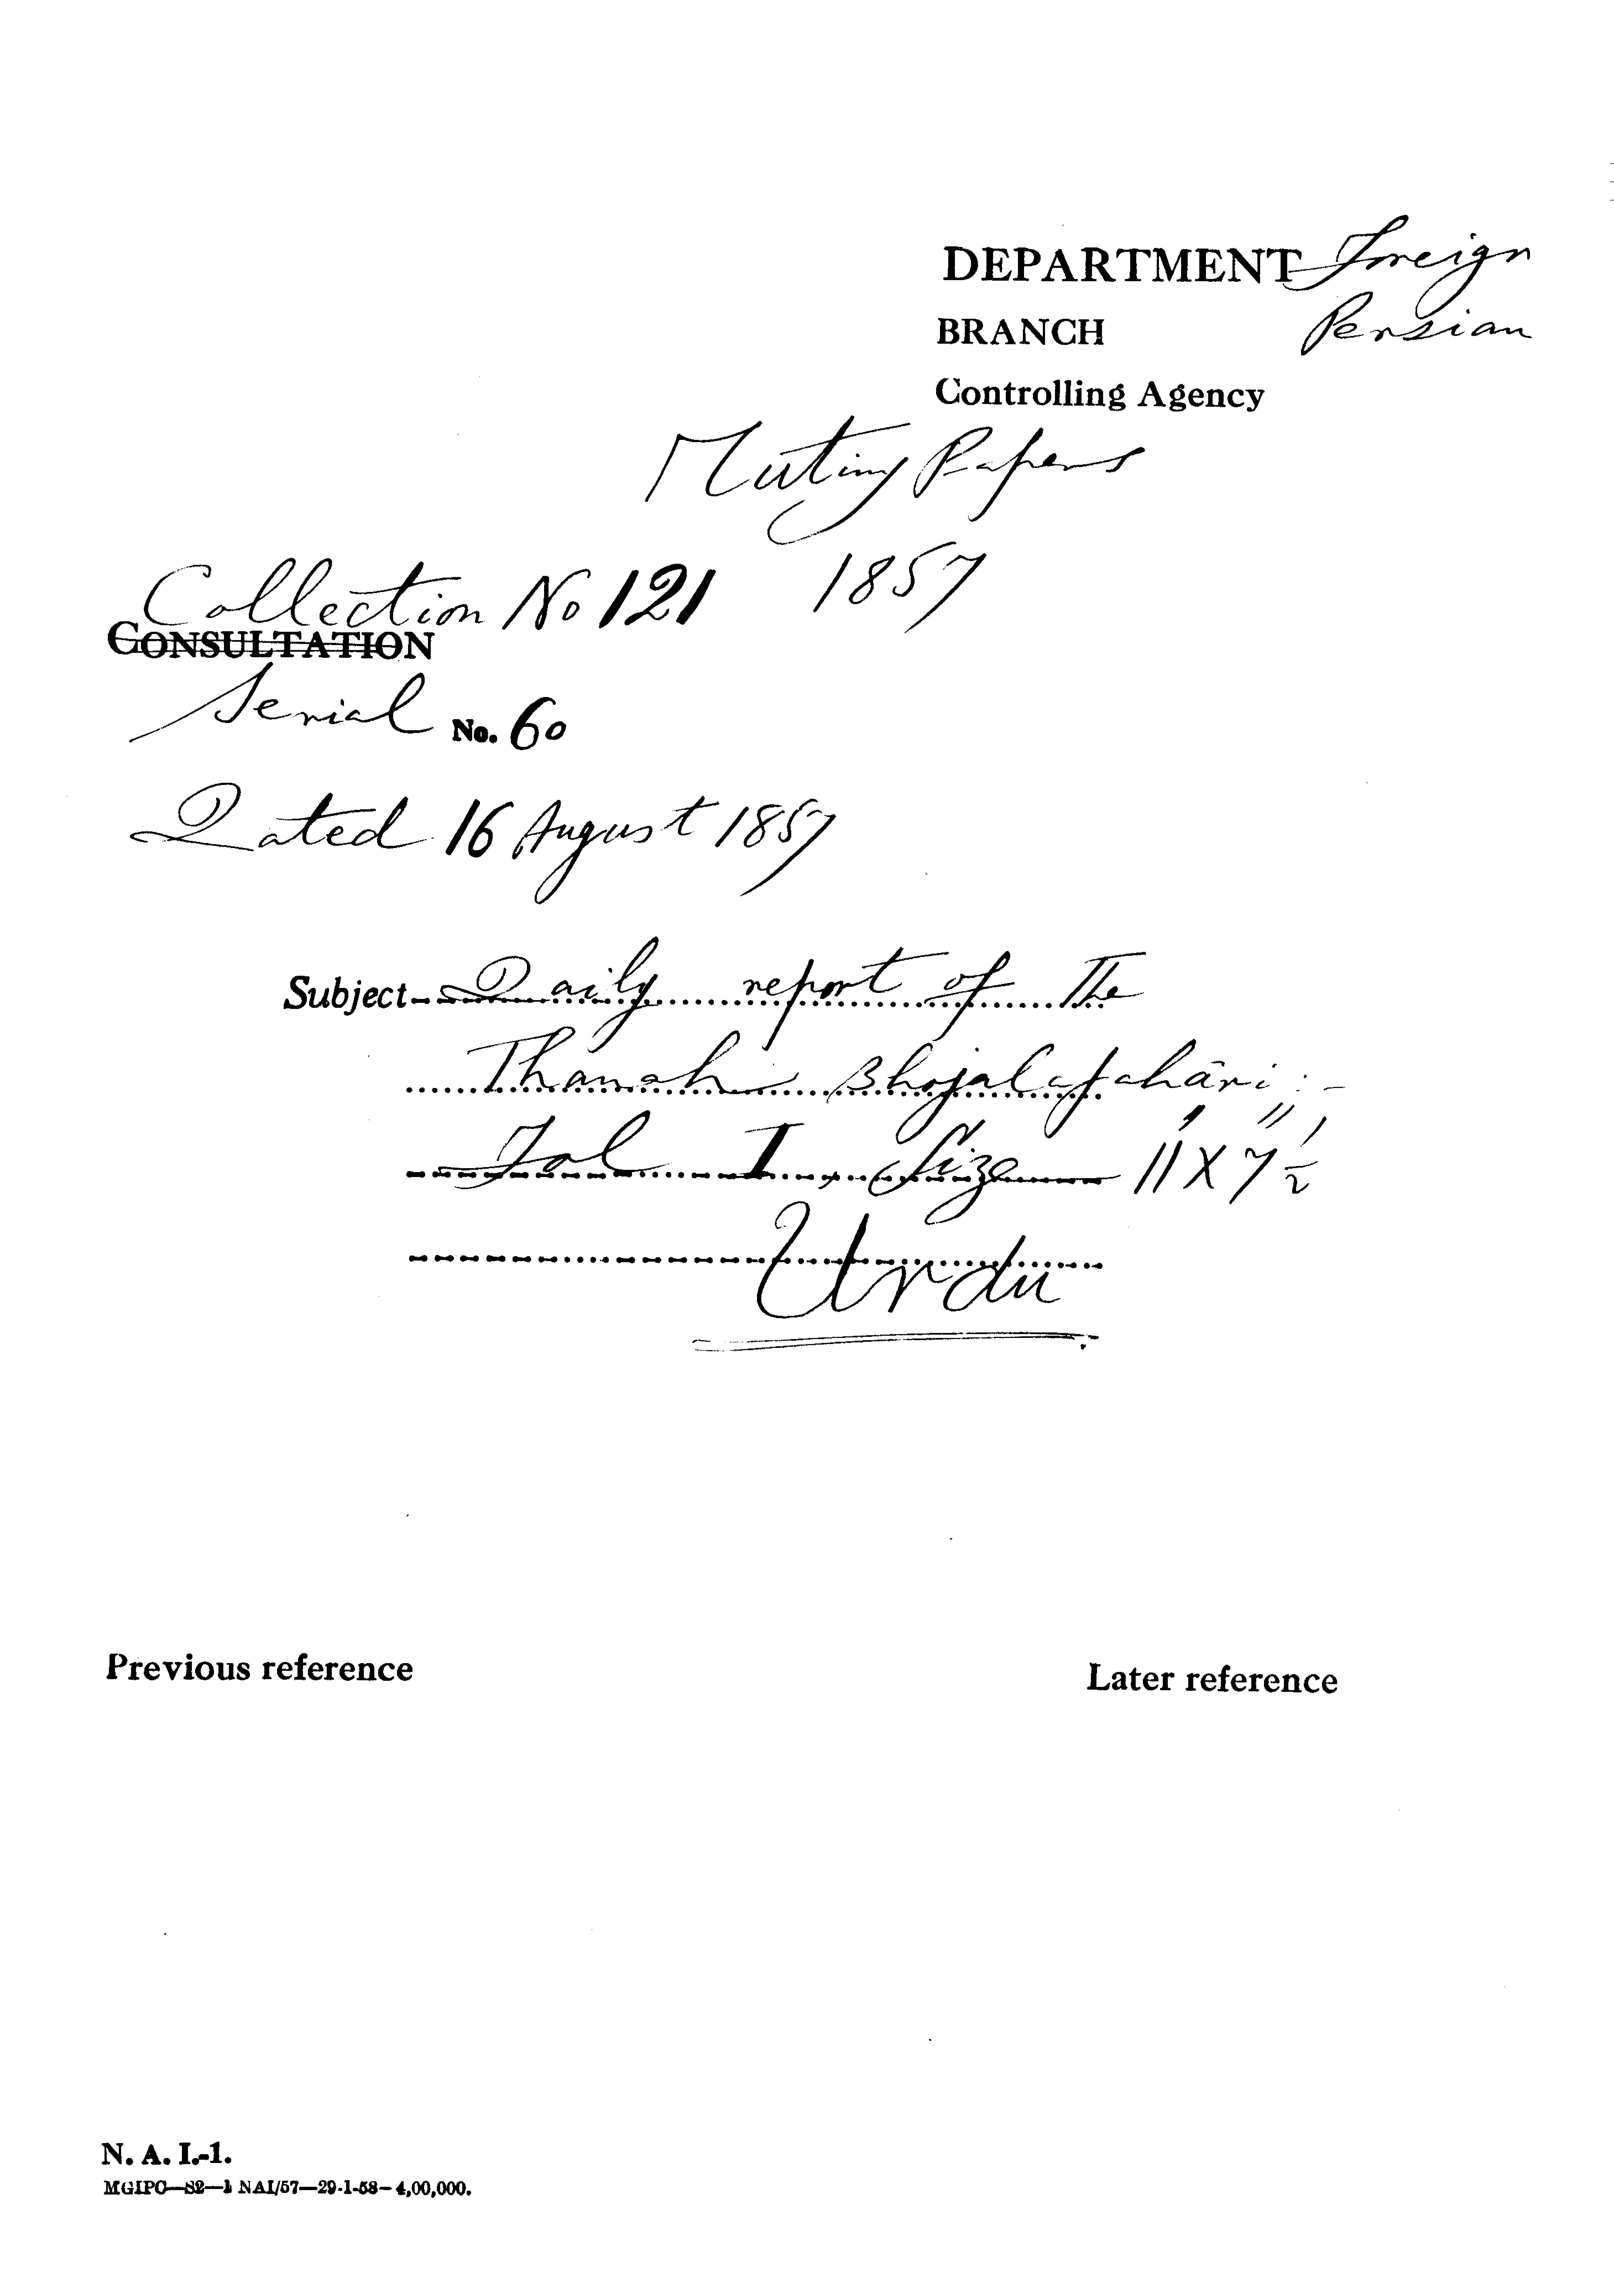 DEPARTMENT Foreign
BRANCH Persian
Controlling Agency
Mutiny Papers
1857
Collection No 121
CONSULTATION
Serial No. 60
Dated 16 August 1857
Subject Daily report of The
Thanah Bhojalapahāri :-
Fol I, Size 11" X 7½"
Urdu
Previous reference
Later reference
N. A. I.-1.
MGIPC—S2—1 NAI/57—29-1-58—4,00,000.